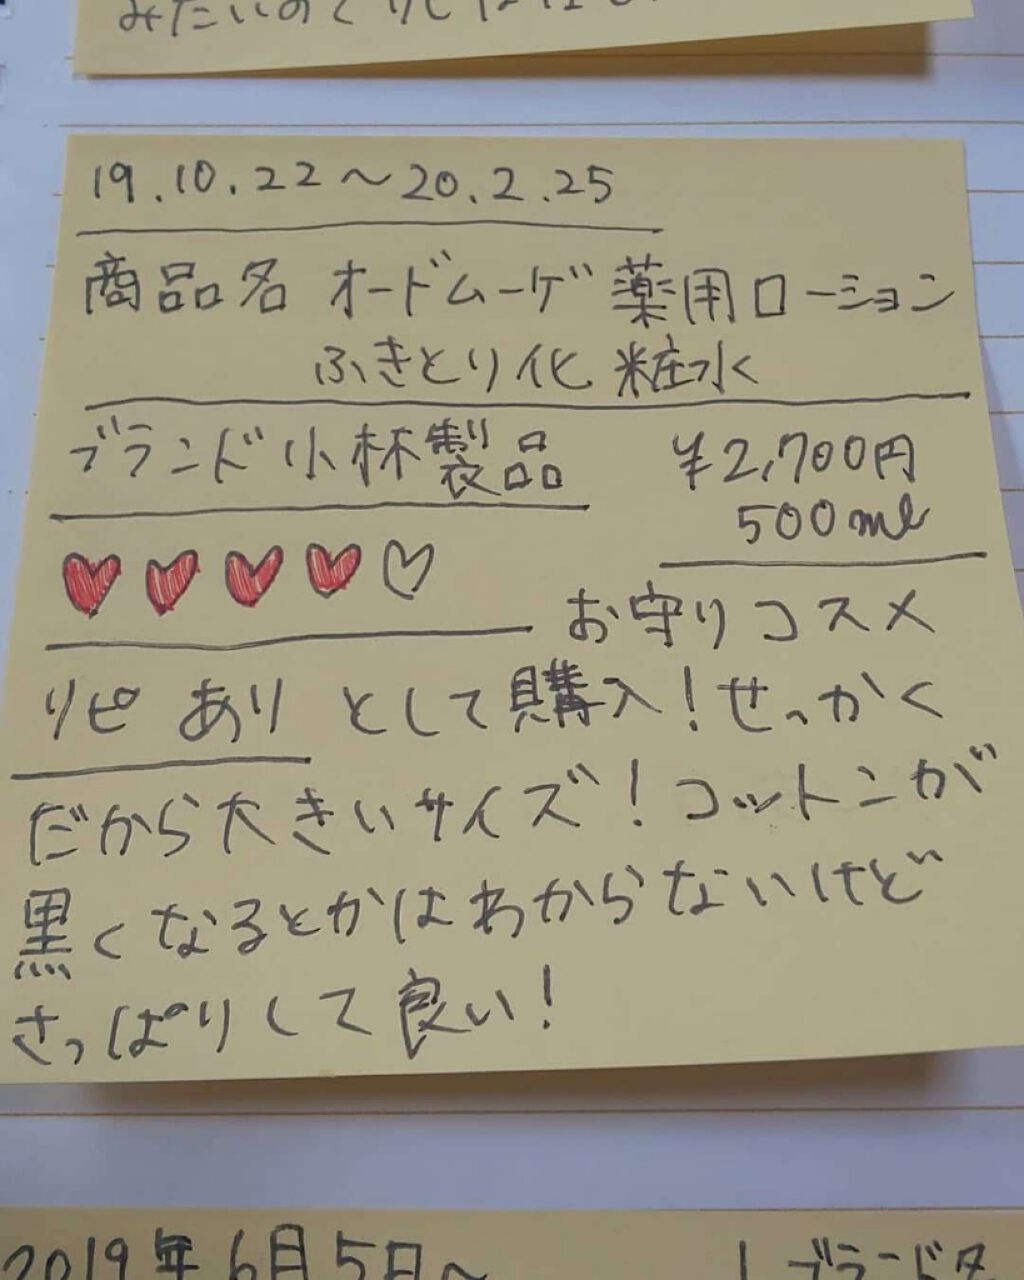 19.10.22～20.2.25
商品名 オードムーゲ 薬用ローション
ふきとり化粧水
ブランド 小林製品
¥2,700円
500ml
お守りコスメ
リピ あり として購入！せっかく
だから大きいサイズ！コットンが
黒くなるとかはわからないけど
さっぱりして良い！
2019年6月5日～